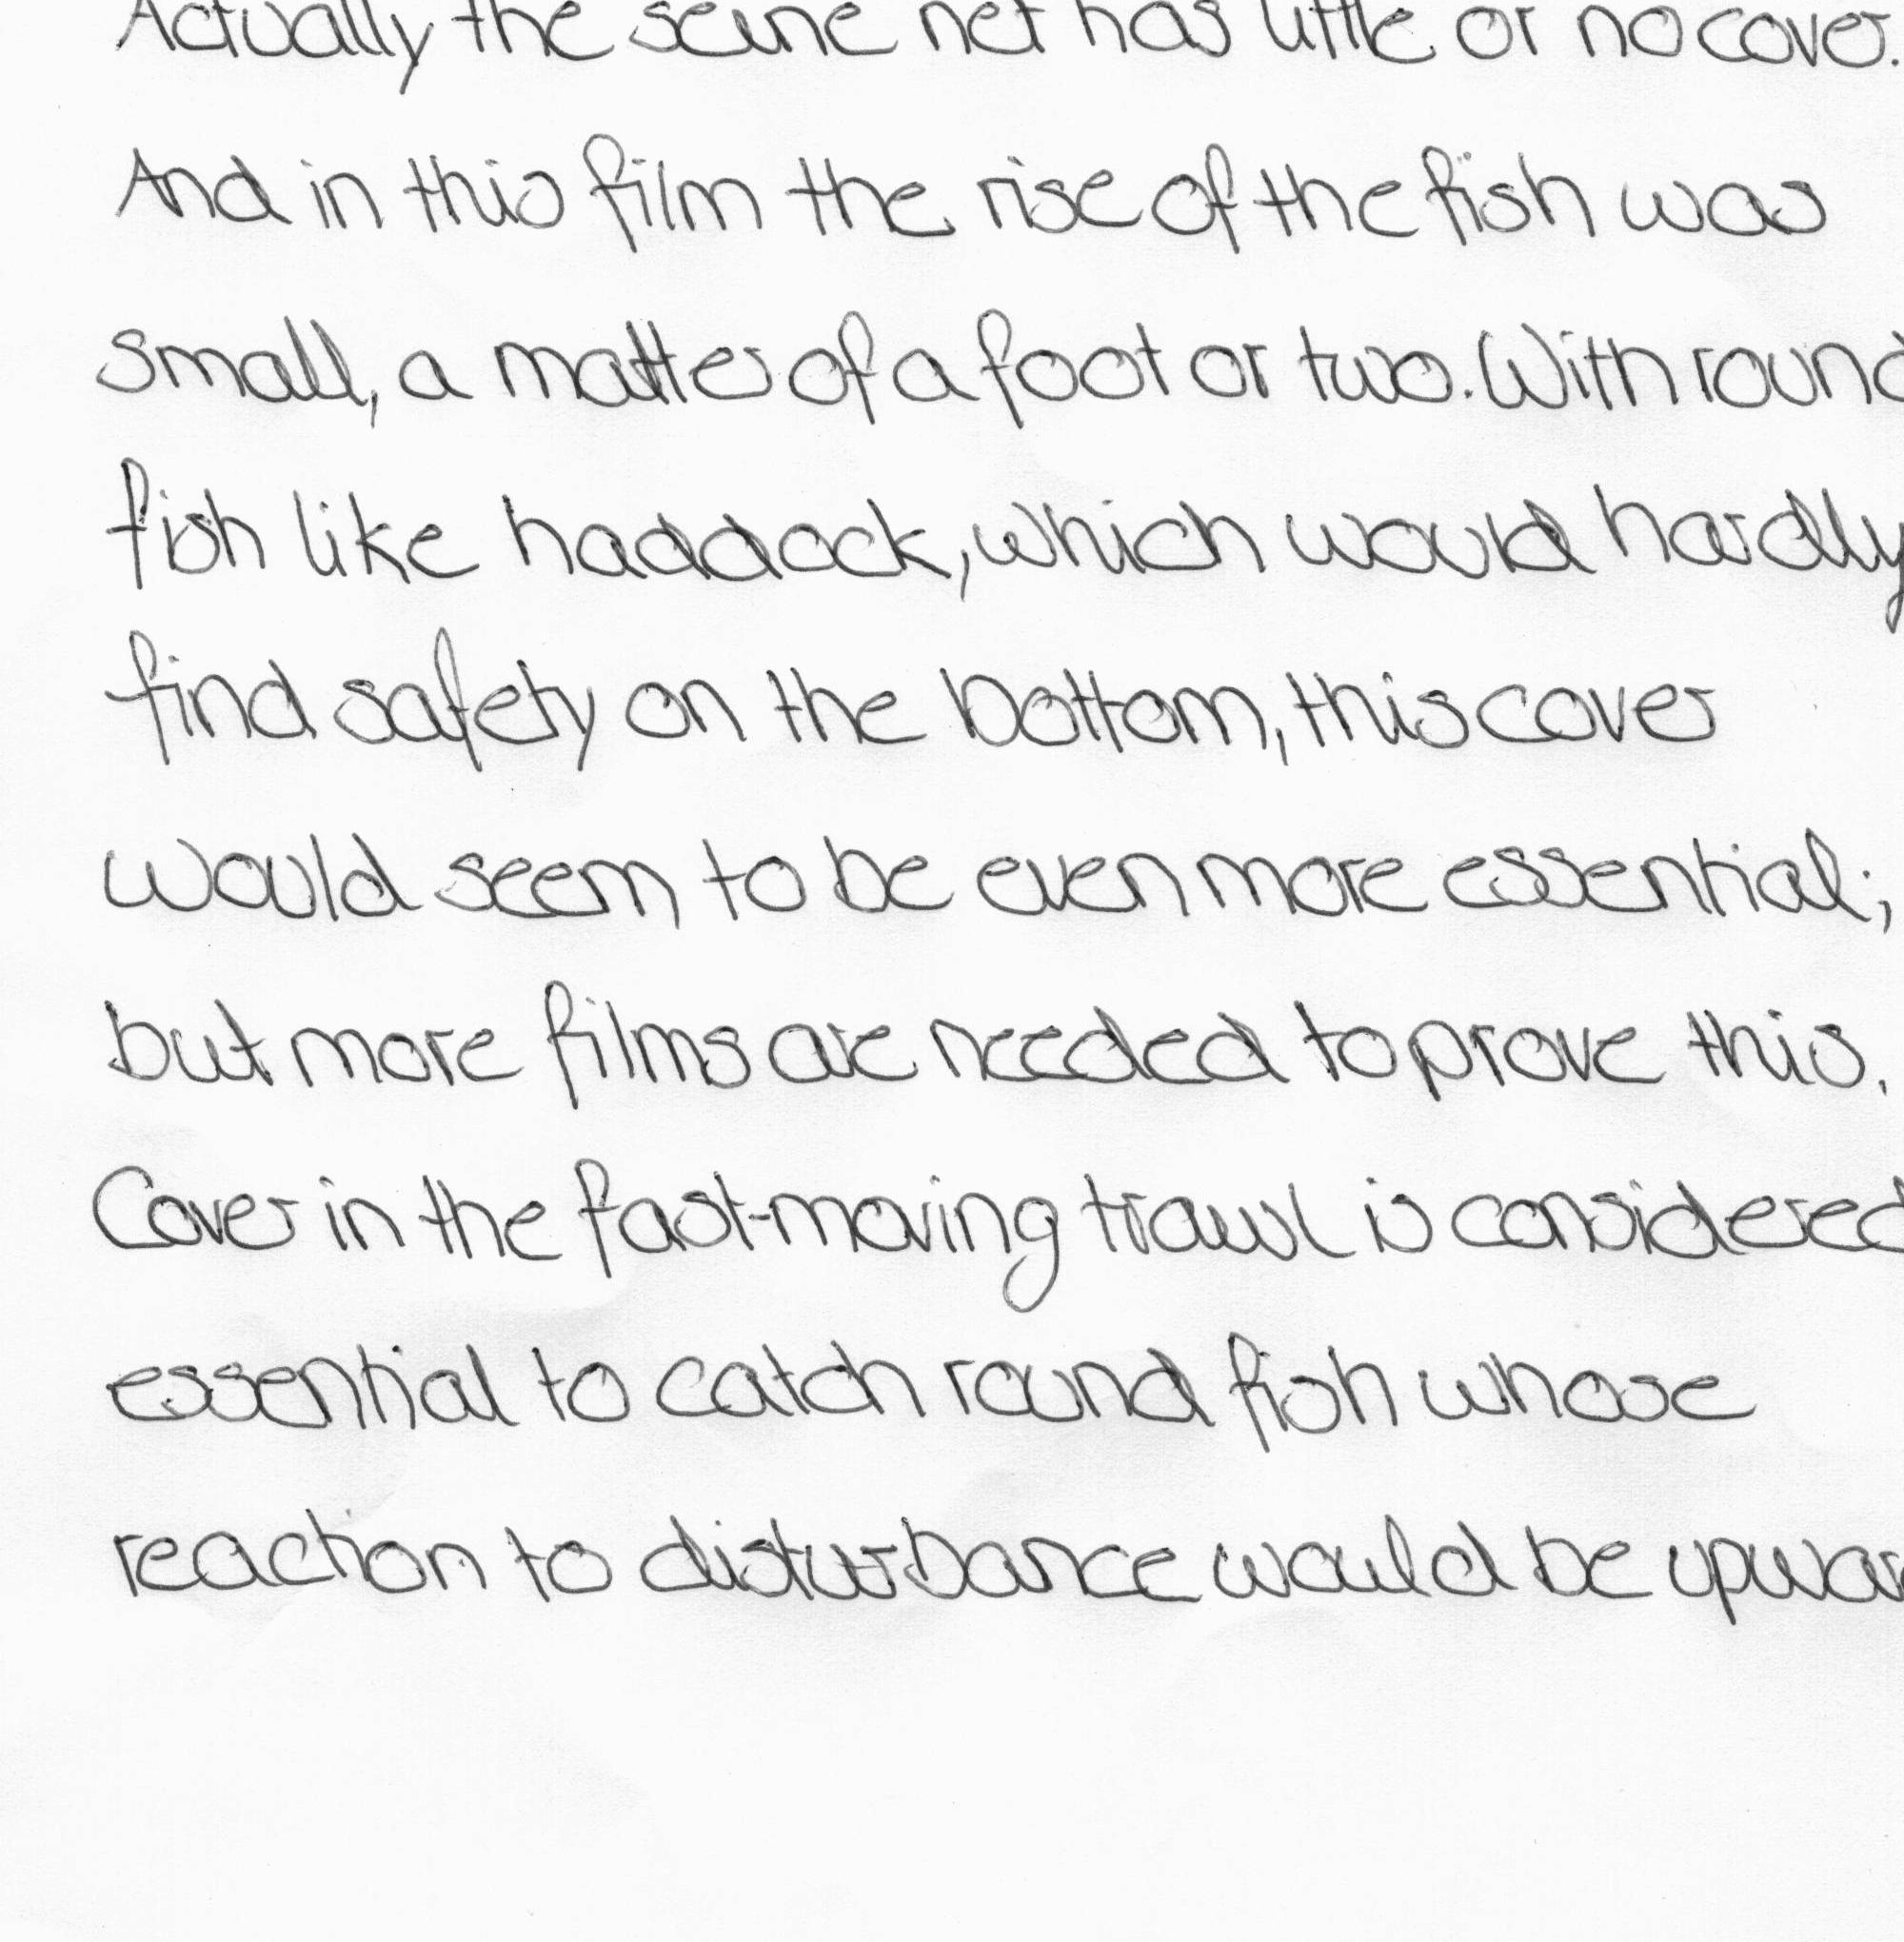 Actually the seine net has little or no cover.
And in this film the rise of the fish was
small, a matter of a foot or two. With round
fish like haddock, which would hardly
find safety on the bottom, this cover
would seem to be even more essential;
but more films are needed to prove this.
Cover in the fast-moving trawl is considered
essential to catch round fish whose
reaction to disturbance would be upwar